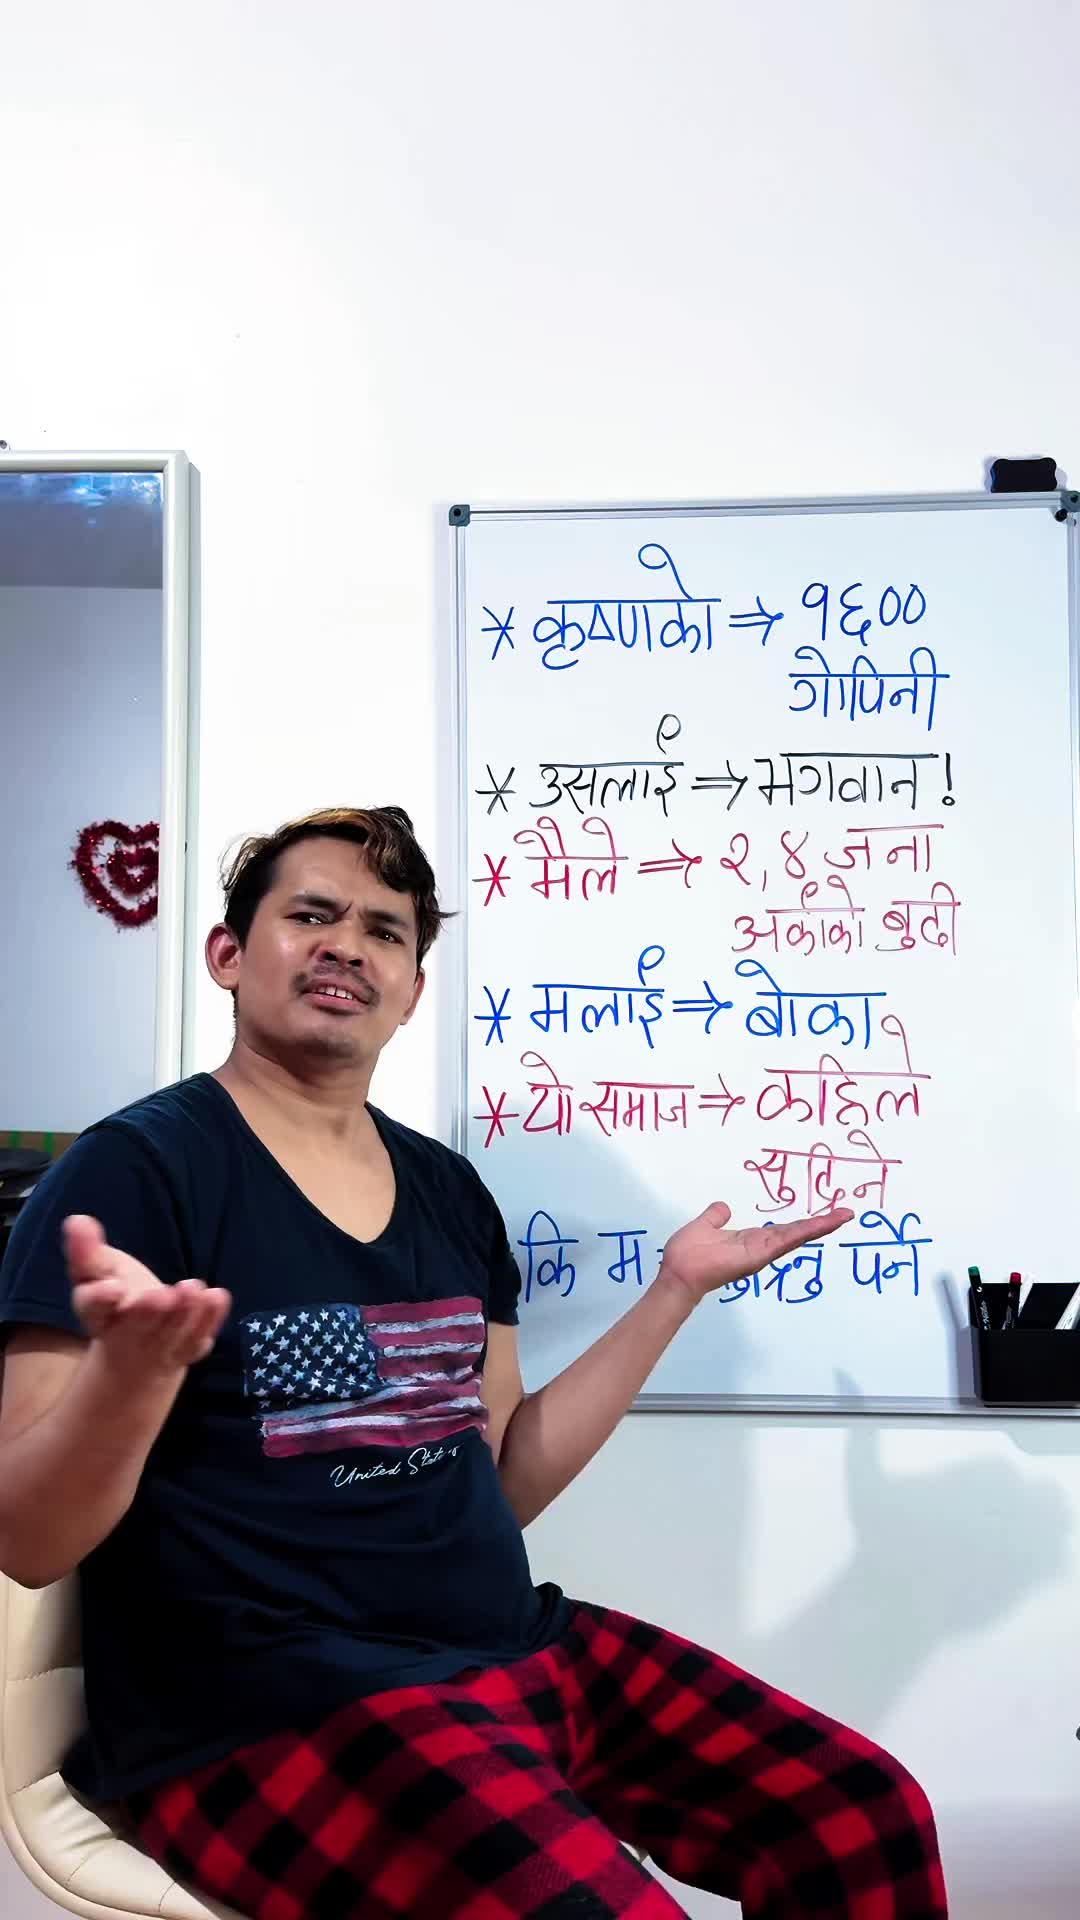 * कृष्णको ⇒ १६००
गोपिनी
* उसलाई ⇒ भगवान !
* मैले ⇒ २,४ जना
अर्काको बुढी
* मलाई ⇒ बोका
* यो समाज ⇒ कहिले
सुध्रिने
कि म पर्ने
United States